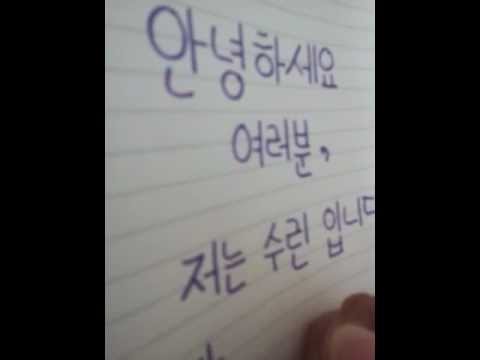 안녕하세요
여러분,
저는 수린 입니다